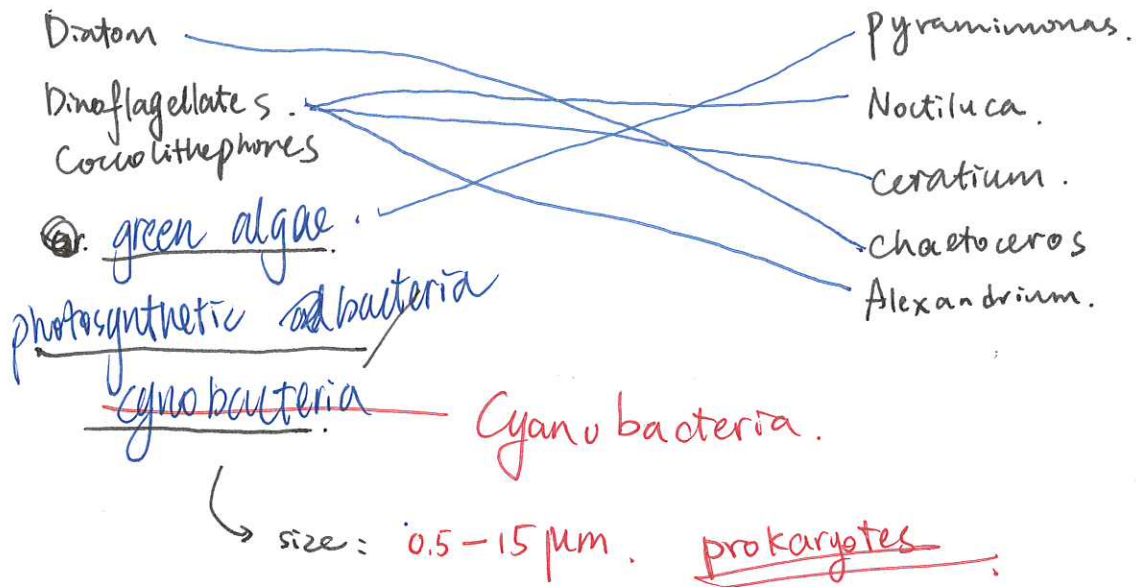 Diatom
Dinoflagellates.
Coccolithephores
green algae.
photosynthetic bacteria
cynobacteria
Cyanobacteria.
size: 0.5-15 μm. prokaryotes
Pyramimonas.
Noctiluca.
ceratium.
chaetoceros
Alexandrium.